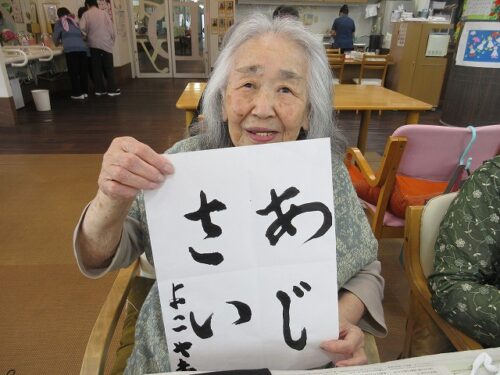 あじ
さい
よこやま